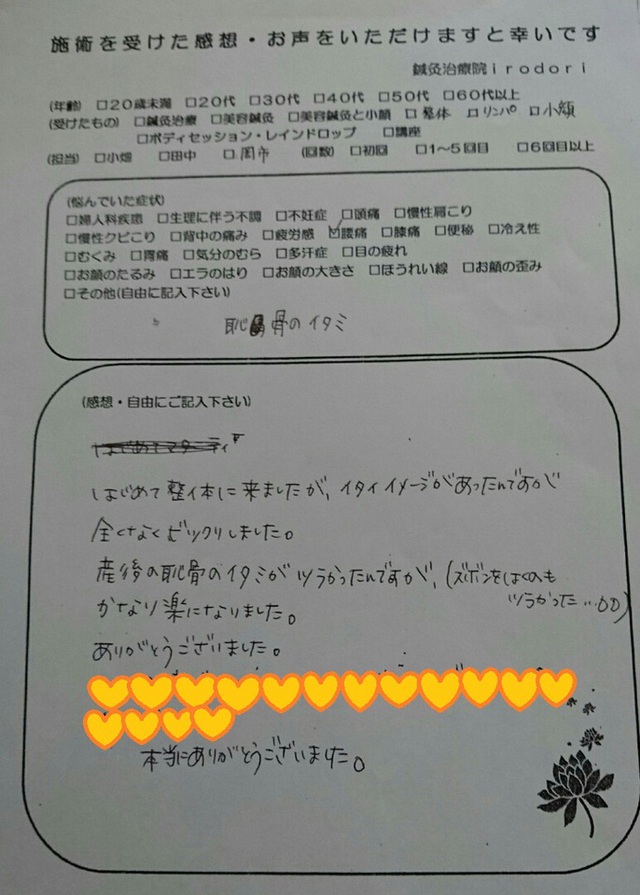 施術を受けた感想・お声をいただけますと幸いです
鍼灸治療院irodori
(年齢) □20歳未満 □20代 □30代 □40代 □50代 □60代以上
(受けたもの) □鍼灸治療 □美容鍼灸 □美容鍼灸と小顔 □整体 □リンパ □小顔
□ボディセッション・レインドロップ □講座
(担当) □小畑 □田中 □岡市 (回数) □初回 □1〜5回目 □6回目以上
(悩んでいた症状)
□婦人科疾患 □生理に伴う不調 □不妊症 □頭痛 □慢性肩こり
□慢性クビこり □背中の痛み □疲労感 ☑腰痛 □膝痛 □便秘 □冷え性
□むくみ □胃痛 □気分のむら □多汗症 □目の疲れ
□お顔のたるみ □エラのはり □お顔の大きさ □ほうれい線 □お顔の歪み
□その他(自由に記入下さい)
恥骨のイタミ
(感想・自由にご記入下さい)
はじめて整体に来ましたが、イタイイメージがあったんですが
全くなくビックリしました。
産後の恥骨のイタミがツラかったんですが、(ズボンをはくのも
ツラかった…
かなり楽になりました。
ありがとうございました。
本当にありがとうございました。